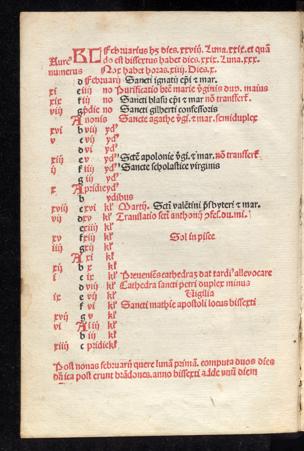 Aure⁹ KL Februarius hʒ dies. xxviij. Luna. xxix. et quā
do est bissextus habet dies. xxix. Luna. xxx.
numerus Nox habet horas. xiiij. Dies. x.
d Februarij Sancti ignatij ep̄i ⁊ mar.
xi e iiij no Purificatio btē marie v̄ginis dup. maius
xix f iij no Sancti blasij ep̄i ⁊ mar nō transferť.
viij g pridie no Sancti gilberti confessoris
A nonis Sancte agathe v̄gi. ⁊ mar. semiduplex
xvi b viij ydꝰ
v c vij ydꝰ
d vi ydꝰ
xiij e v ydꝰ Scťē apolonie v̄gi. ⁊ mar. nō transferť.
ij f iiij ydꝰ Sancte scholastice virginis
g iij ydꝰ
x A pridie ydꝰ
b ydibus
xviij c xvi kł Martij. Scťi valētini p̄sbyteri ⁊ mar.
vij d xv kł Translatio scťi anthonij
e xiiij kł
xv f xiij kł Sol in pisce
iiij g xij kł
A xi kł
xij b x kł
i c ix kł
d viij kł Cathedra sancti petri duplex minus
ix e vij kł Vigilia
f vi kł Sancti mathie apostoli locus bissexti
xvij g v kł
vi A iiij kł
b iij kł
xiiij c pridie kł
Post nonas februarij quere lunā primā. computa duos dies
dn̄ica post erunt brādones. anno bissexti adde unū diem